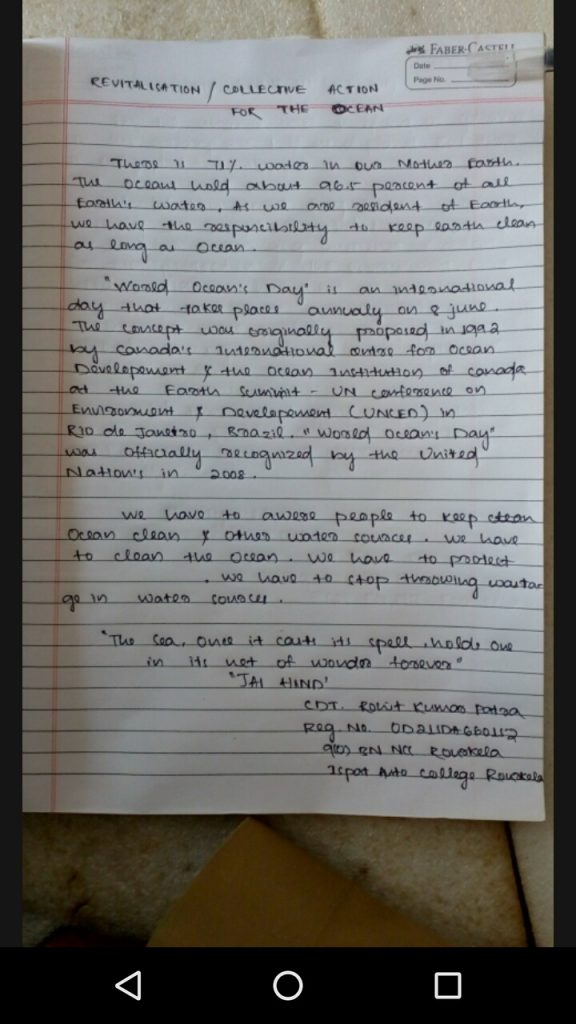 FABER-CASTELL
Date
Page No.
REVITALISATION / COLLECTIVE ACTION
FOR THE OCEAN
There is 71% water in our Mother Earth.
The oceans hold about 96.5 percent of all
Earth's water, As we are resident of Earth,
we have the responscibility to keep earth clean
as long as Ocean.
"World Ocean's Day" is an international
day that takes places annualy on 8 june.
The concept was originally proposed in 1992
by Canada's International centre for Ocean
Developement & the Ocean Institution of Canada
at the Earth Summit - UN conference on
Environment & Developement (UNCED) in
RIO de Janeiro, Brazil. "World Ocean's Day"
was officially recognized by the United
Nation's in 2008.
We have to awere people to keep clean
Ocean clean & other water sources. We have
to clean the ocean. We have to protect
. We have to stop throwing wasta
ge in water sources.
"The Sea, once it casts its spell, holds one
in its net of wonder forever"
"JAI HIND'
CDT. Rohit Kumar
Reg. No.
BN NCC Rourkela
Ispat Auto College Rourkela